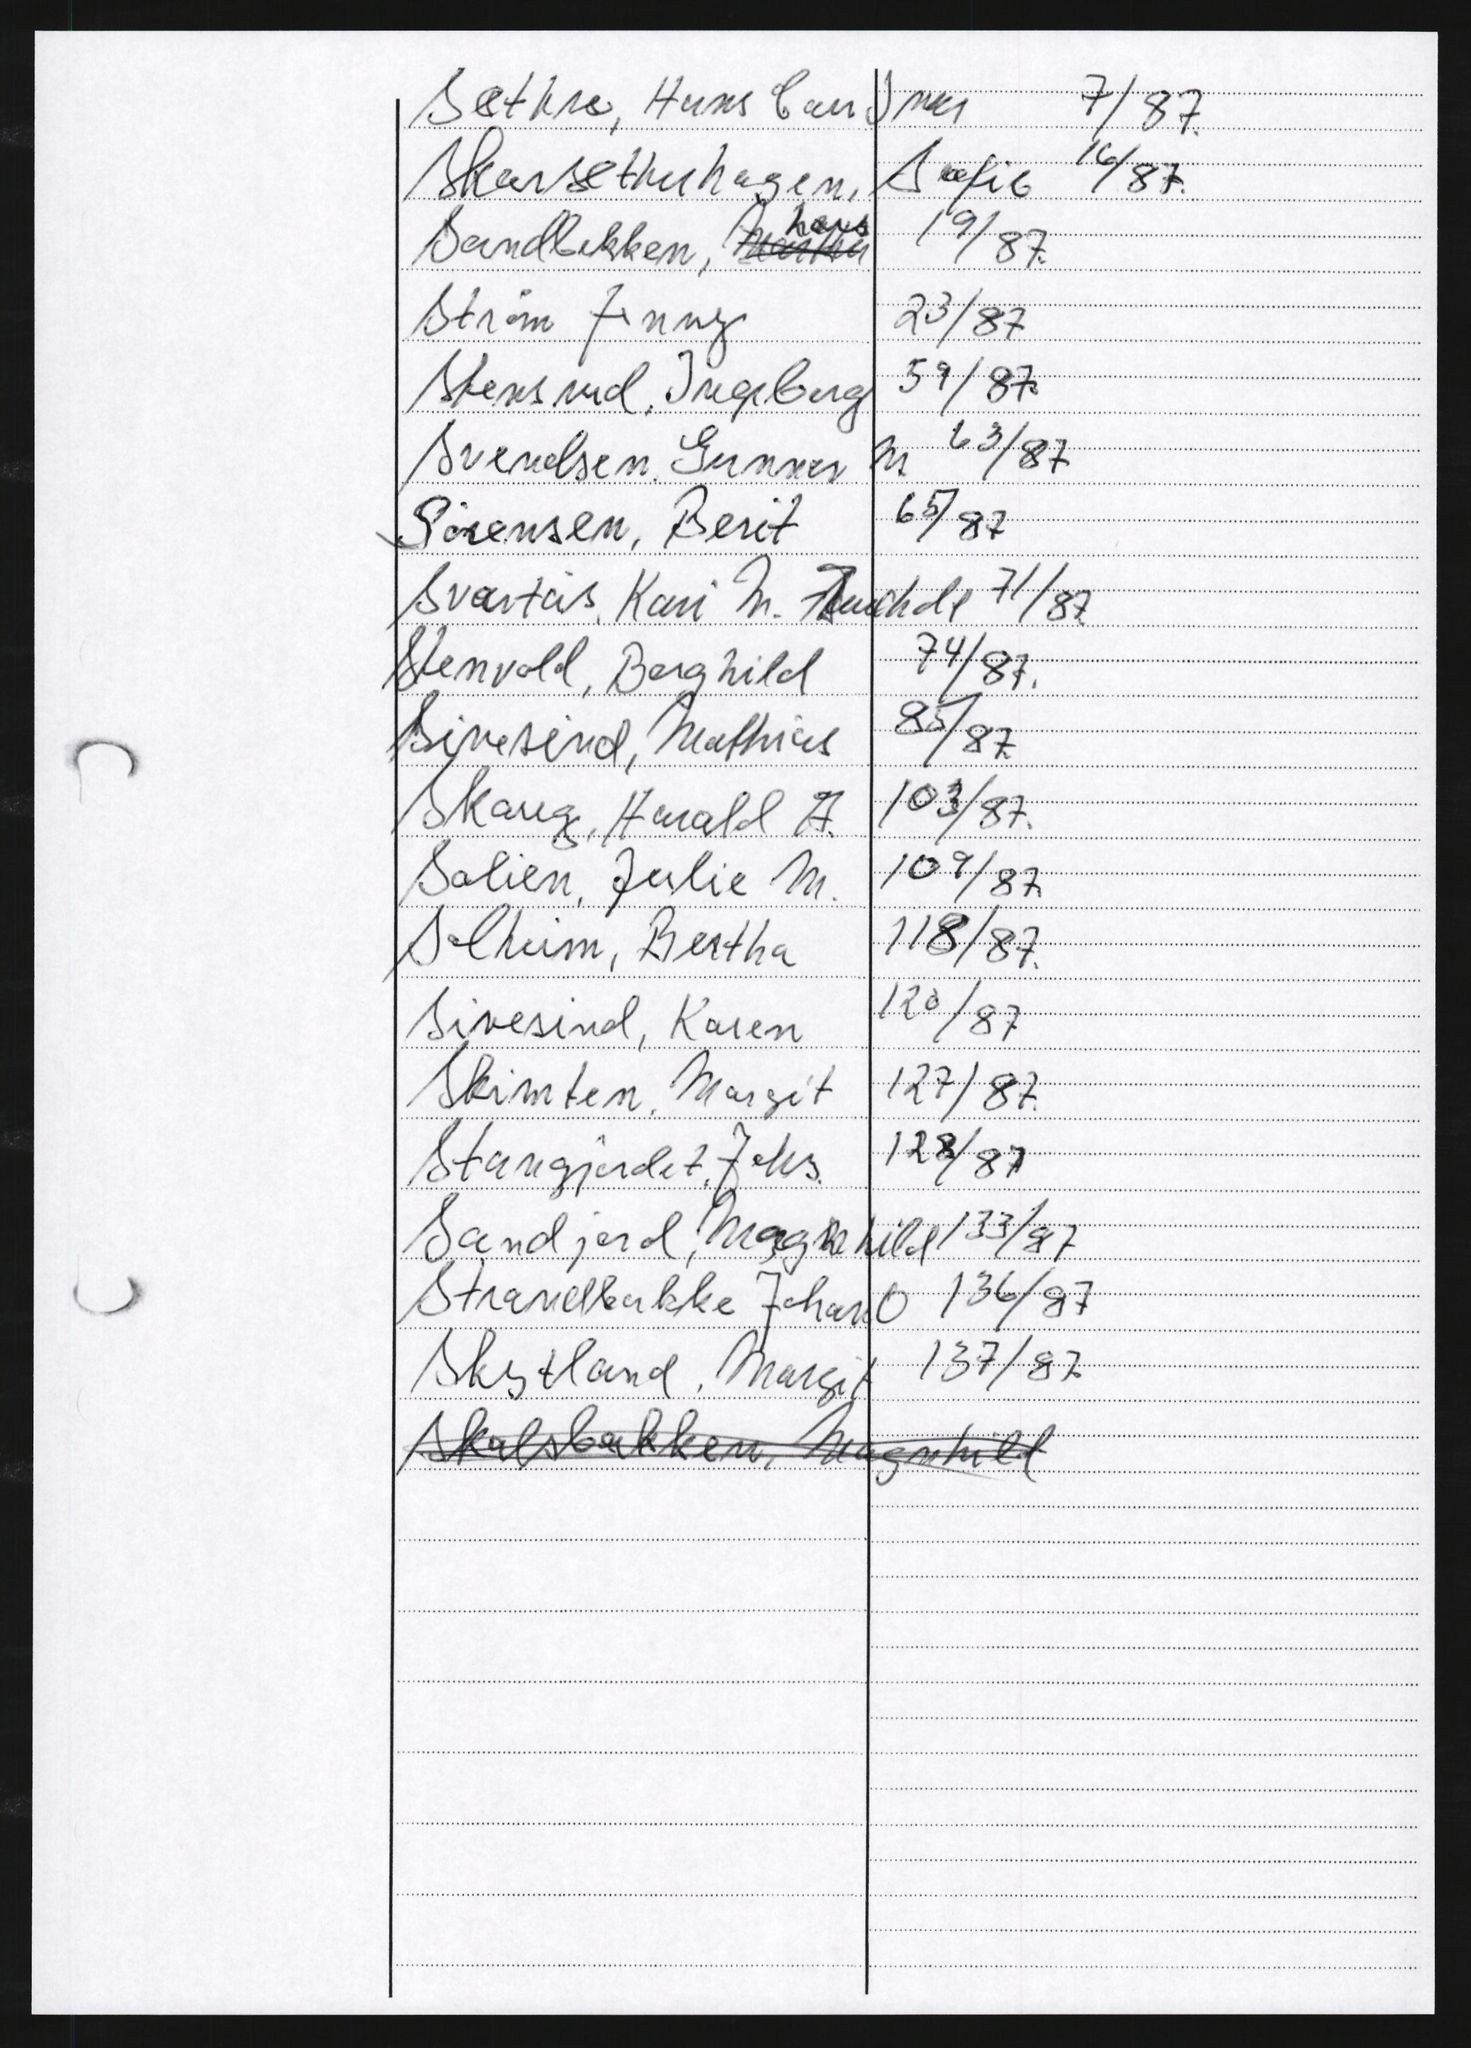 Sæthre, Hans Carl Iver 7/87.
Skarsethershagen, Sofie 16/87.
Sandbekken, Hans 19/87.
Strøm Jenny 23/87
Stensrud, Ingeborg 59/87.
Svendsen. Gunnar M. 63/87
Sørensen, Berit 65/87
Svartås, Kari M. 71/87
Stenvold, Borghild 74/87.
Sivesind, Mathias 85/87.
Skaug, Harald A. 103/87.
Solien, Julie M. 109/87.
Solheim, Bertha 118/87.
Sivesind, Karen 120/87
Skimten, Margit 127/87.
Stangjordet, Johs. 128/87
Sandjord, Magnhild 133/87
Strandbakke Johan O 136/87
Skytland, Margit 137/87.
Skalsbakken, Magnhild